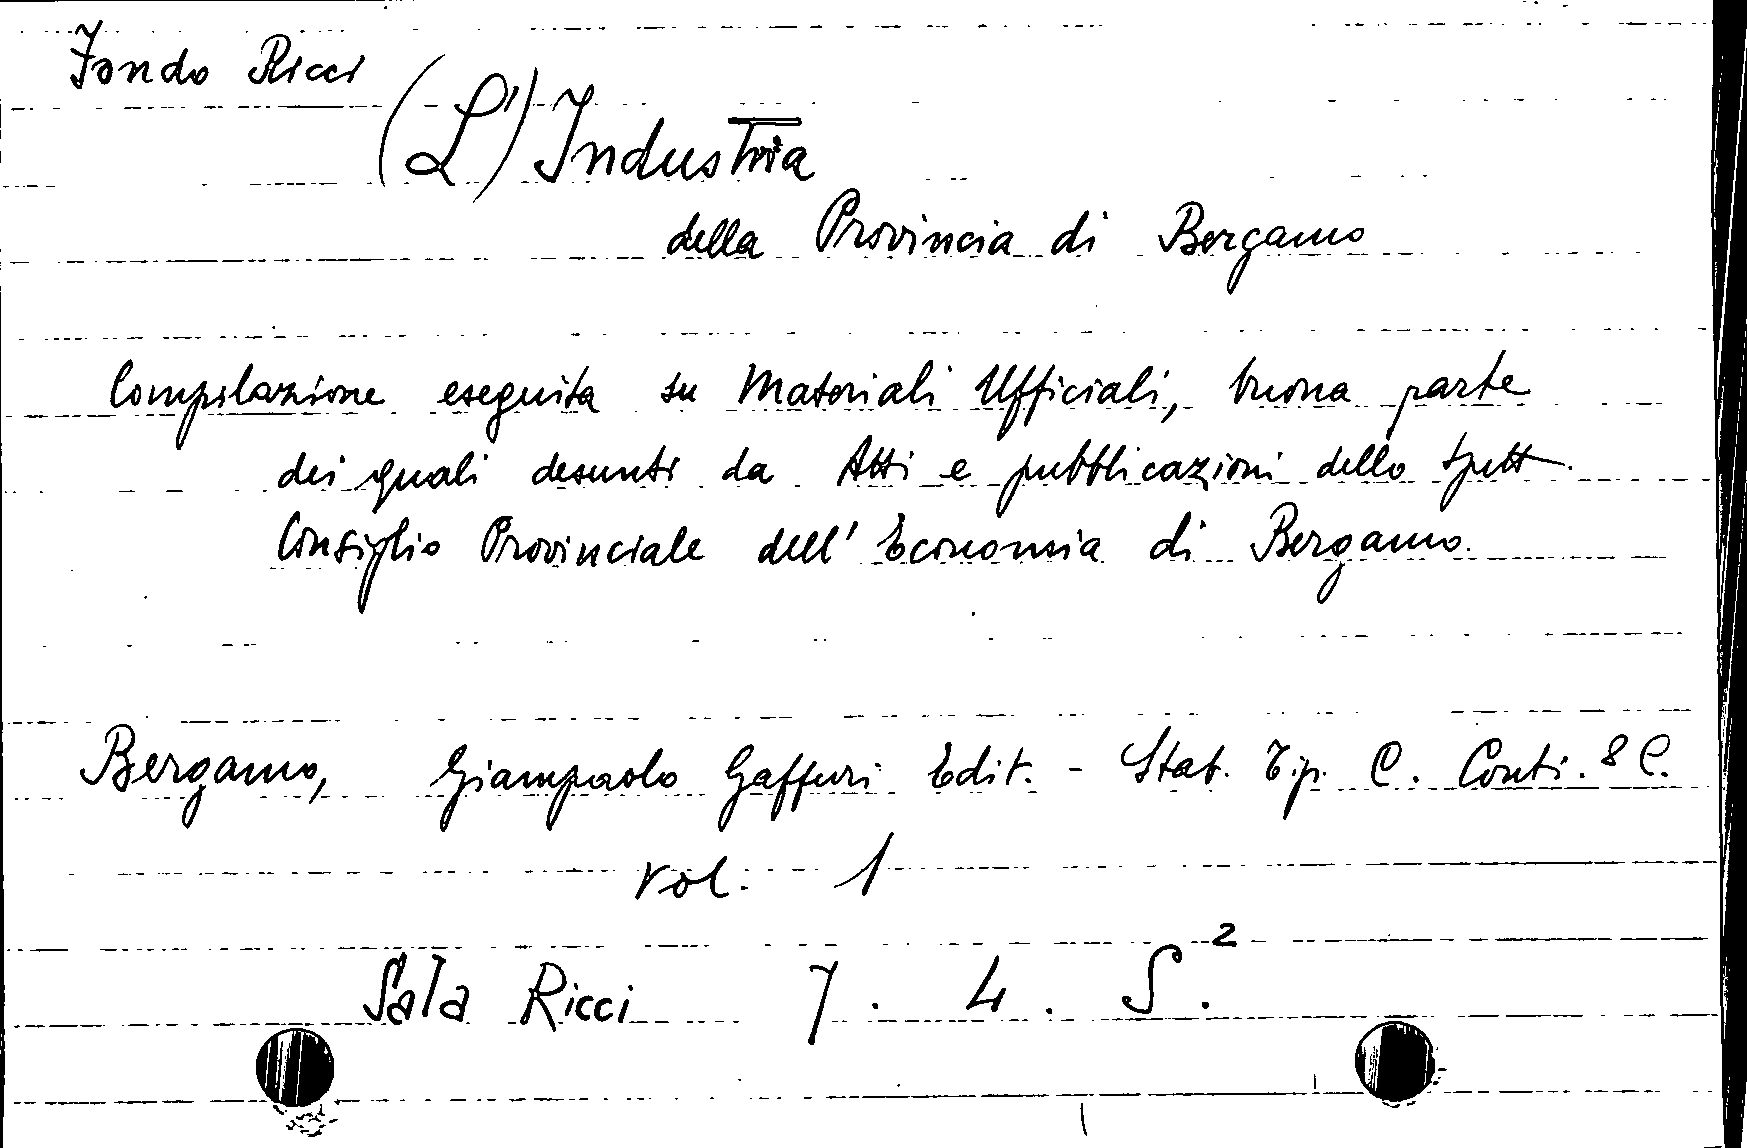 Fondo Ricci
(L') Industria
della Provincia di Bergamo
Compilazione eseguita su Materiali Ufficiali, buona parte
dei quali desunti da Atti e pubblicazioni dello Spett.
Consiglio Provinciale dell'Economia di Bergamo.
Bergamo, Giampaolo Gaffuri Edit. - Stab. Tip. C. Conti. & C.
vol. 1
Sala Ricci 7. 4. S.²